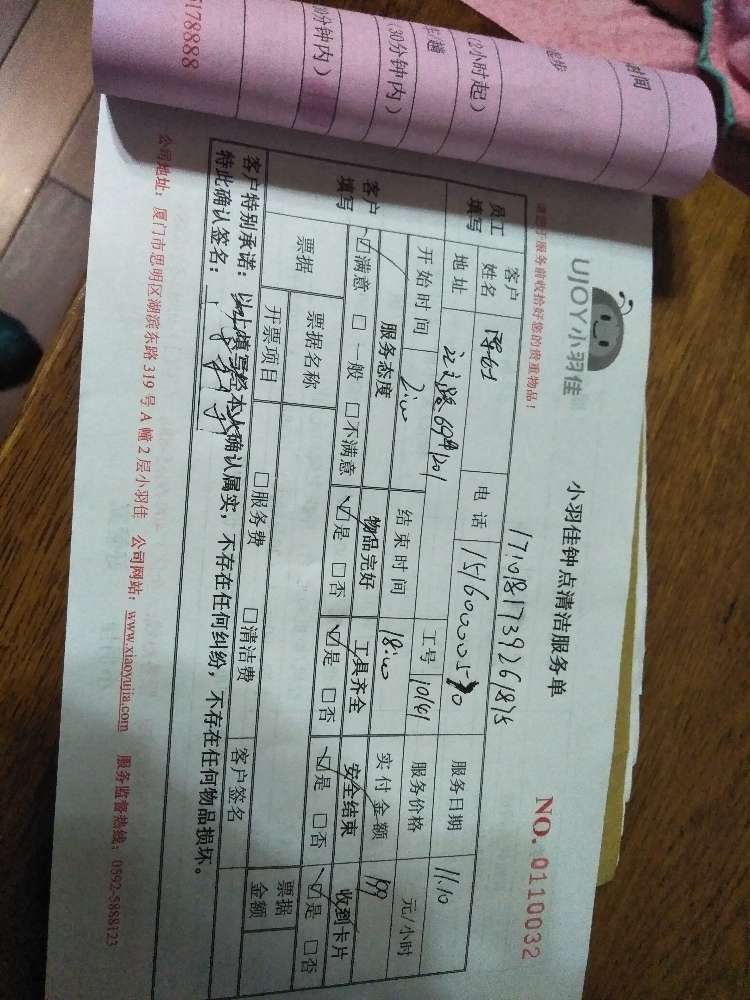 时间
起步
(2小时起)
(30分钟内)
0分钟内)
5178888
UJOY小羽佳
小羽佳钟点清洁服务单
NO. 0110032
于服务前收拾好您的贵重物品！
员工填写
客户姓名
电话
服务日期 11.10
地址
69
1201
工号 10161
服务价格 元/小时
开始时间
结束时间 18:00
实付金额 199
客户填写
服务态度 物品完好 工具齐全 安全结束 收到卡片
☑满意 □一般 □不满意 ☑是 □否 ☑是 □否 ☑是 □否 ☑是 □否
票据
票据名称
客户签名
票据金额
开票项目 □服务费 □清洁费
客户特别承诺：以上填写经本人确认属实，不存在任何纠纷，不存在任何物品损坏。
特此确认签名：
公司地址：厦门市思明区湖滨东路319号A幢2层小羽佳 公司网站：www.xiaoyujia.com 服务监督热线：0592-5888123